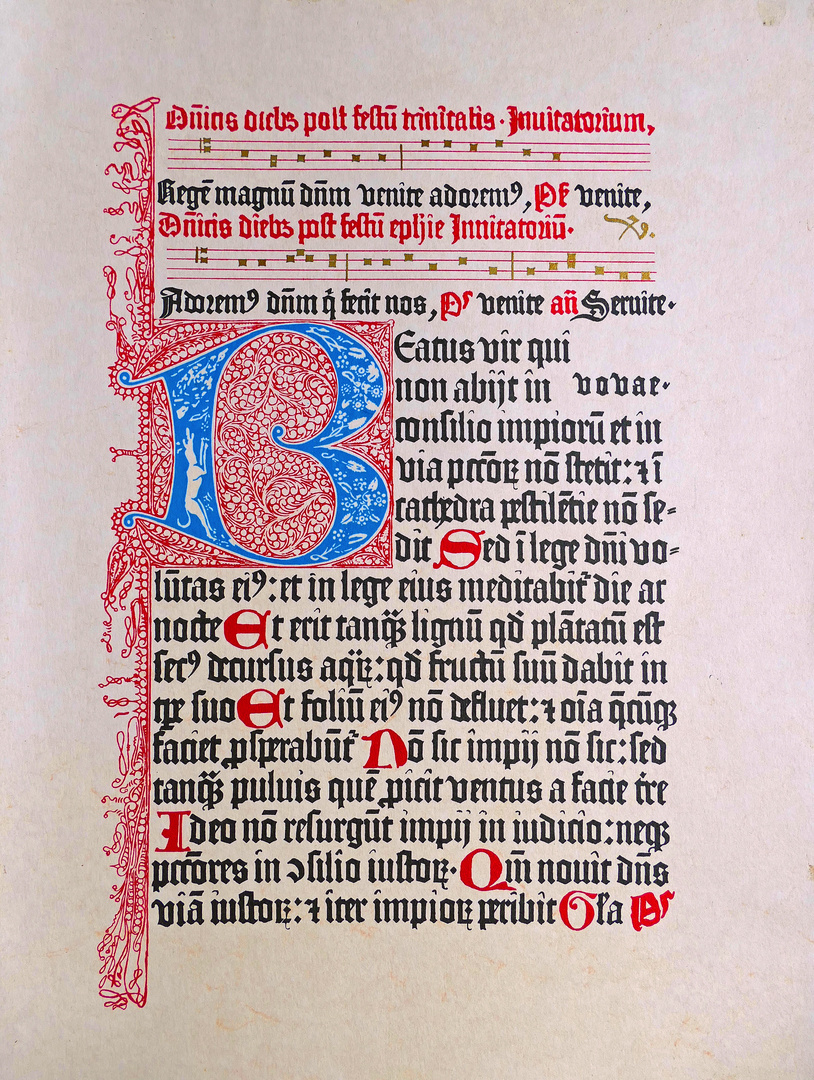 Dn̄icis diebꝫ post festū trinitatis · Inuitatorium,
Regē magnū dn̄m venite adoremꝰ, Ps̄ venite,
Dn̄icis diebꝫ post festū ephie Inuitatoriū·
Adoremꝰ dn̄m q̇ fecit nos, Ps venite an̄ Seruite·
Beatus vir qui
non abijt in vovae·
consilio impiorū et in
via pcc̄oꝝ nō stetit: ⁊ ī
cathedra pestilētie nō se⸗
dit Sed ī lege dn̄i vo⸗
lūtas eiꝰ: et in lege eius meditabit᷑ die ac
nocte Et erit tanqꝫ̄ lignū qd̄ plātatū est
secꝰ decursus aqͣꝝ: qd̄ fructū suū dabit in
tpe suo Et foliū eiꝰ nō defluet: ⁊ oīa q̄cūqꝫ
faciet ꝓsperabūt᷑ Nō sic impij nō sic: sed
tanqꝫ̄ puluis quē ꝓicit ventus a facie tr̄e
Ideo nō resurgūt impij in iudicio: neqꝫ
pcc̄ores in ↄsilio iustoꝝ· Qm̄ nouit dn̄s
viā iustoꝝ: ⁊ iter impioꝝ peribit Gl̄a Ps